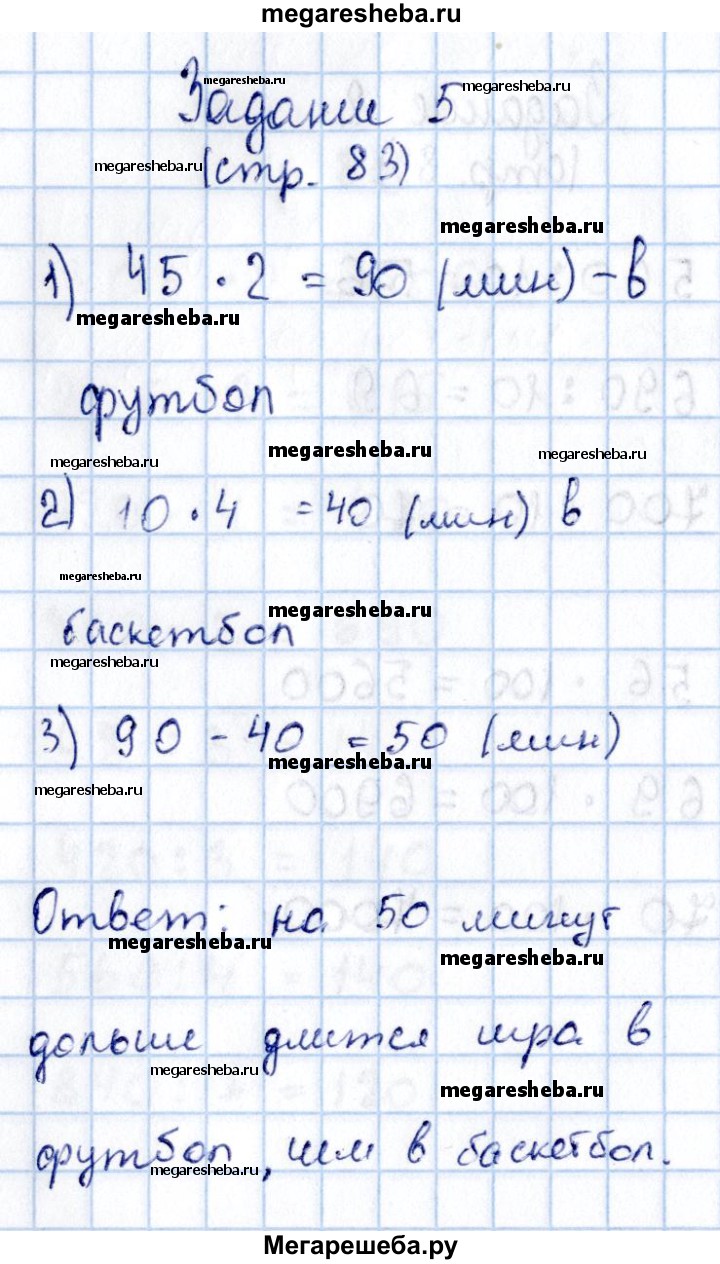 megaresheba.ru
megaresheba.ru
Задание 5 megaresheba.ru
megaresheba.ru (стр. 83)
megaresheba.ru
1) 45 · 2 = 90 (мин) - в
megaresheba.ru
футбол
megaresheba.ru
megaresheba.ru megaresheba.ru
2) 10 · 4 = 40 (мин) в
megaresheba.ru
megaresheba.ru
баскетбол
megaresheba.ru
3) 90 - 40 = 50 (мин)
megaresheba.ru
megaresheba.ru
Ответ: на 50 минут
megaresheba.ru
megaresheba.ru
дольше длится игра в
megaresheba.ru
megaresheba.ru
футбол, чем в баскетбол.
megaresheba.ru
Мегарешеба.ру